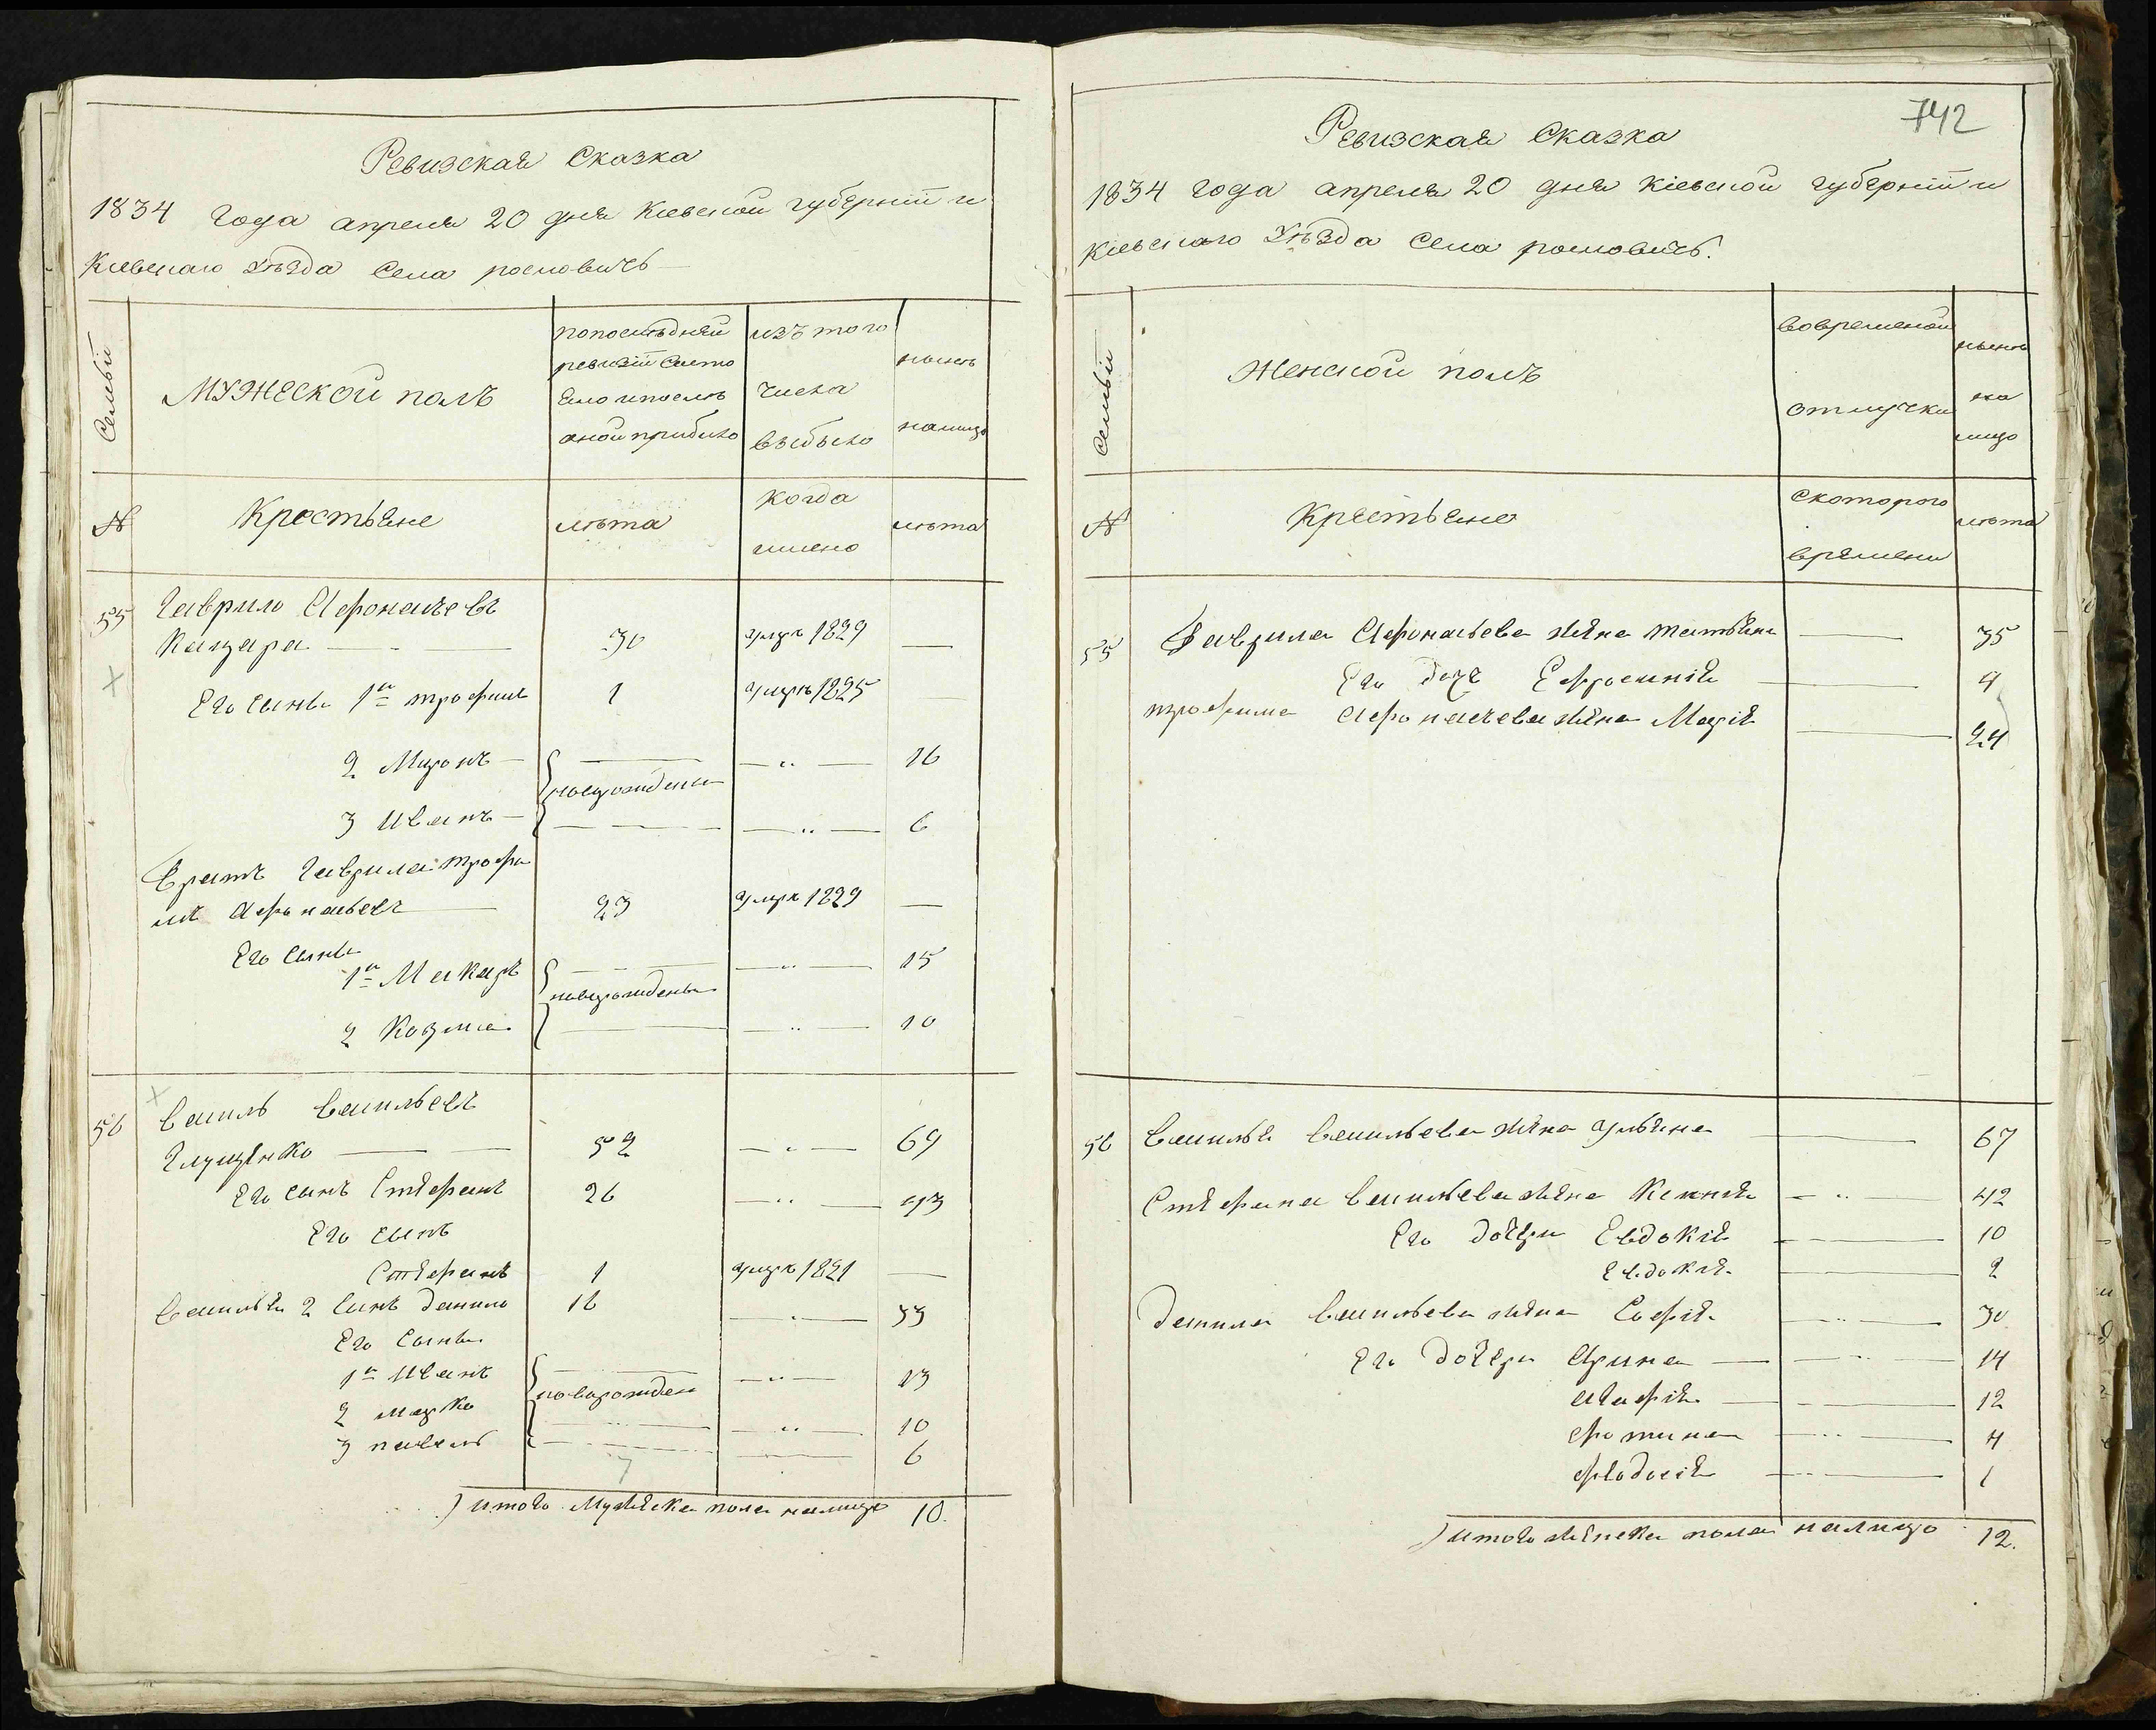 Ревизская Сказка
1834 Года апреля 20 дня Киевской губернїи и
Киевского Уѣзда Села росновичь
Семьи
МУЖЕСКОЙ полъ
попослѣдней
ревизїи Состо
Ело и послѣ
оной прибыло
изъ того
числа
выбыло
нынѣ
налицо
№
Крестьяне
лѣта
когда
имено
лѣта
55 Гаврило Афонасьевъ
Кацара 30 умре 1829
Его сыны 1й трофим 1 умре 1825
2 Миронъ 16
новорождены
3 Иванъ 6
Братъ Гаврила Трофи
мъ Афонасьевъ 23 умре 1829
Его Сыны
1й Макаръ 15
новорождены
2 Козма 10
56 Василь Васильевъ
Глущенко 52 69
Его сынъ Стефанъ 26 43
Его сынъ
Стефанъ 1 умре 1821
Василья 2 Сынъ Данило 16 33
Его Сыны
1й Иванъ 13
новорожден
2 марко 10
3 павелъ 6
7
Итого Мужеска пола налицо 10.
742
Ревизская Сказка
1834 года апреля 20 дня Кіевской губернїи и
Кіевского Уѣзда Села росновичь.
Семьи
Женской полъ
вовременой
отлучки
нынѣ
на
лицо
№
Крестьяне
скоторого
времени
лѣта
55 Гаврила Афонасьева жена татьяна 35
Его дочь Ефросинія 4
трофима Афонасьева жена Марія 24
56 Василья Васильева жена Ульяна 67
Стефана Васильева жена Ксенія 42
Его дочери Евдокія 10
Евдокія 2
Данила Васильева жена Софія 30
Его дочери Арина 14
Агафія 12
фотина 4
феодосія 1
Итого женска пола налицо 12.